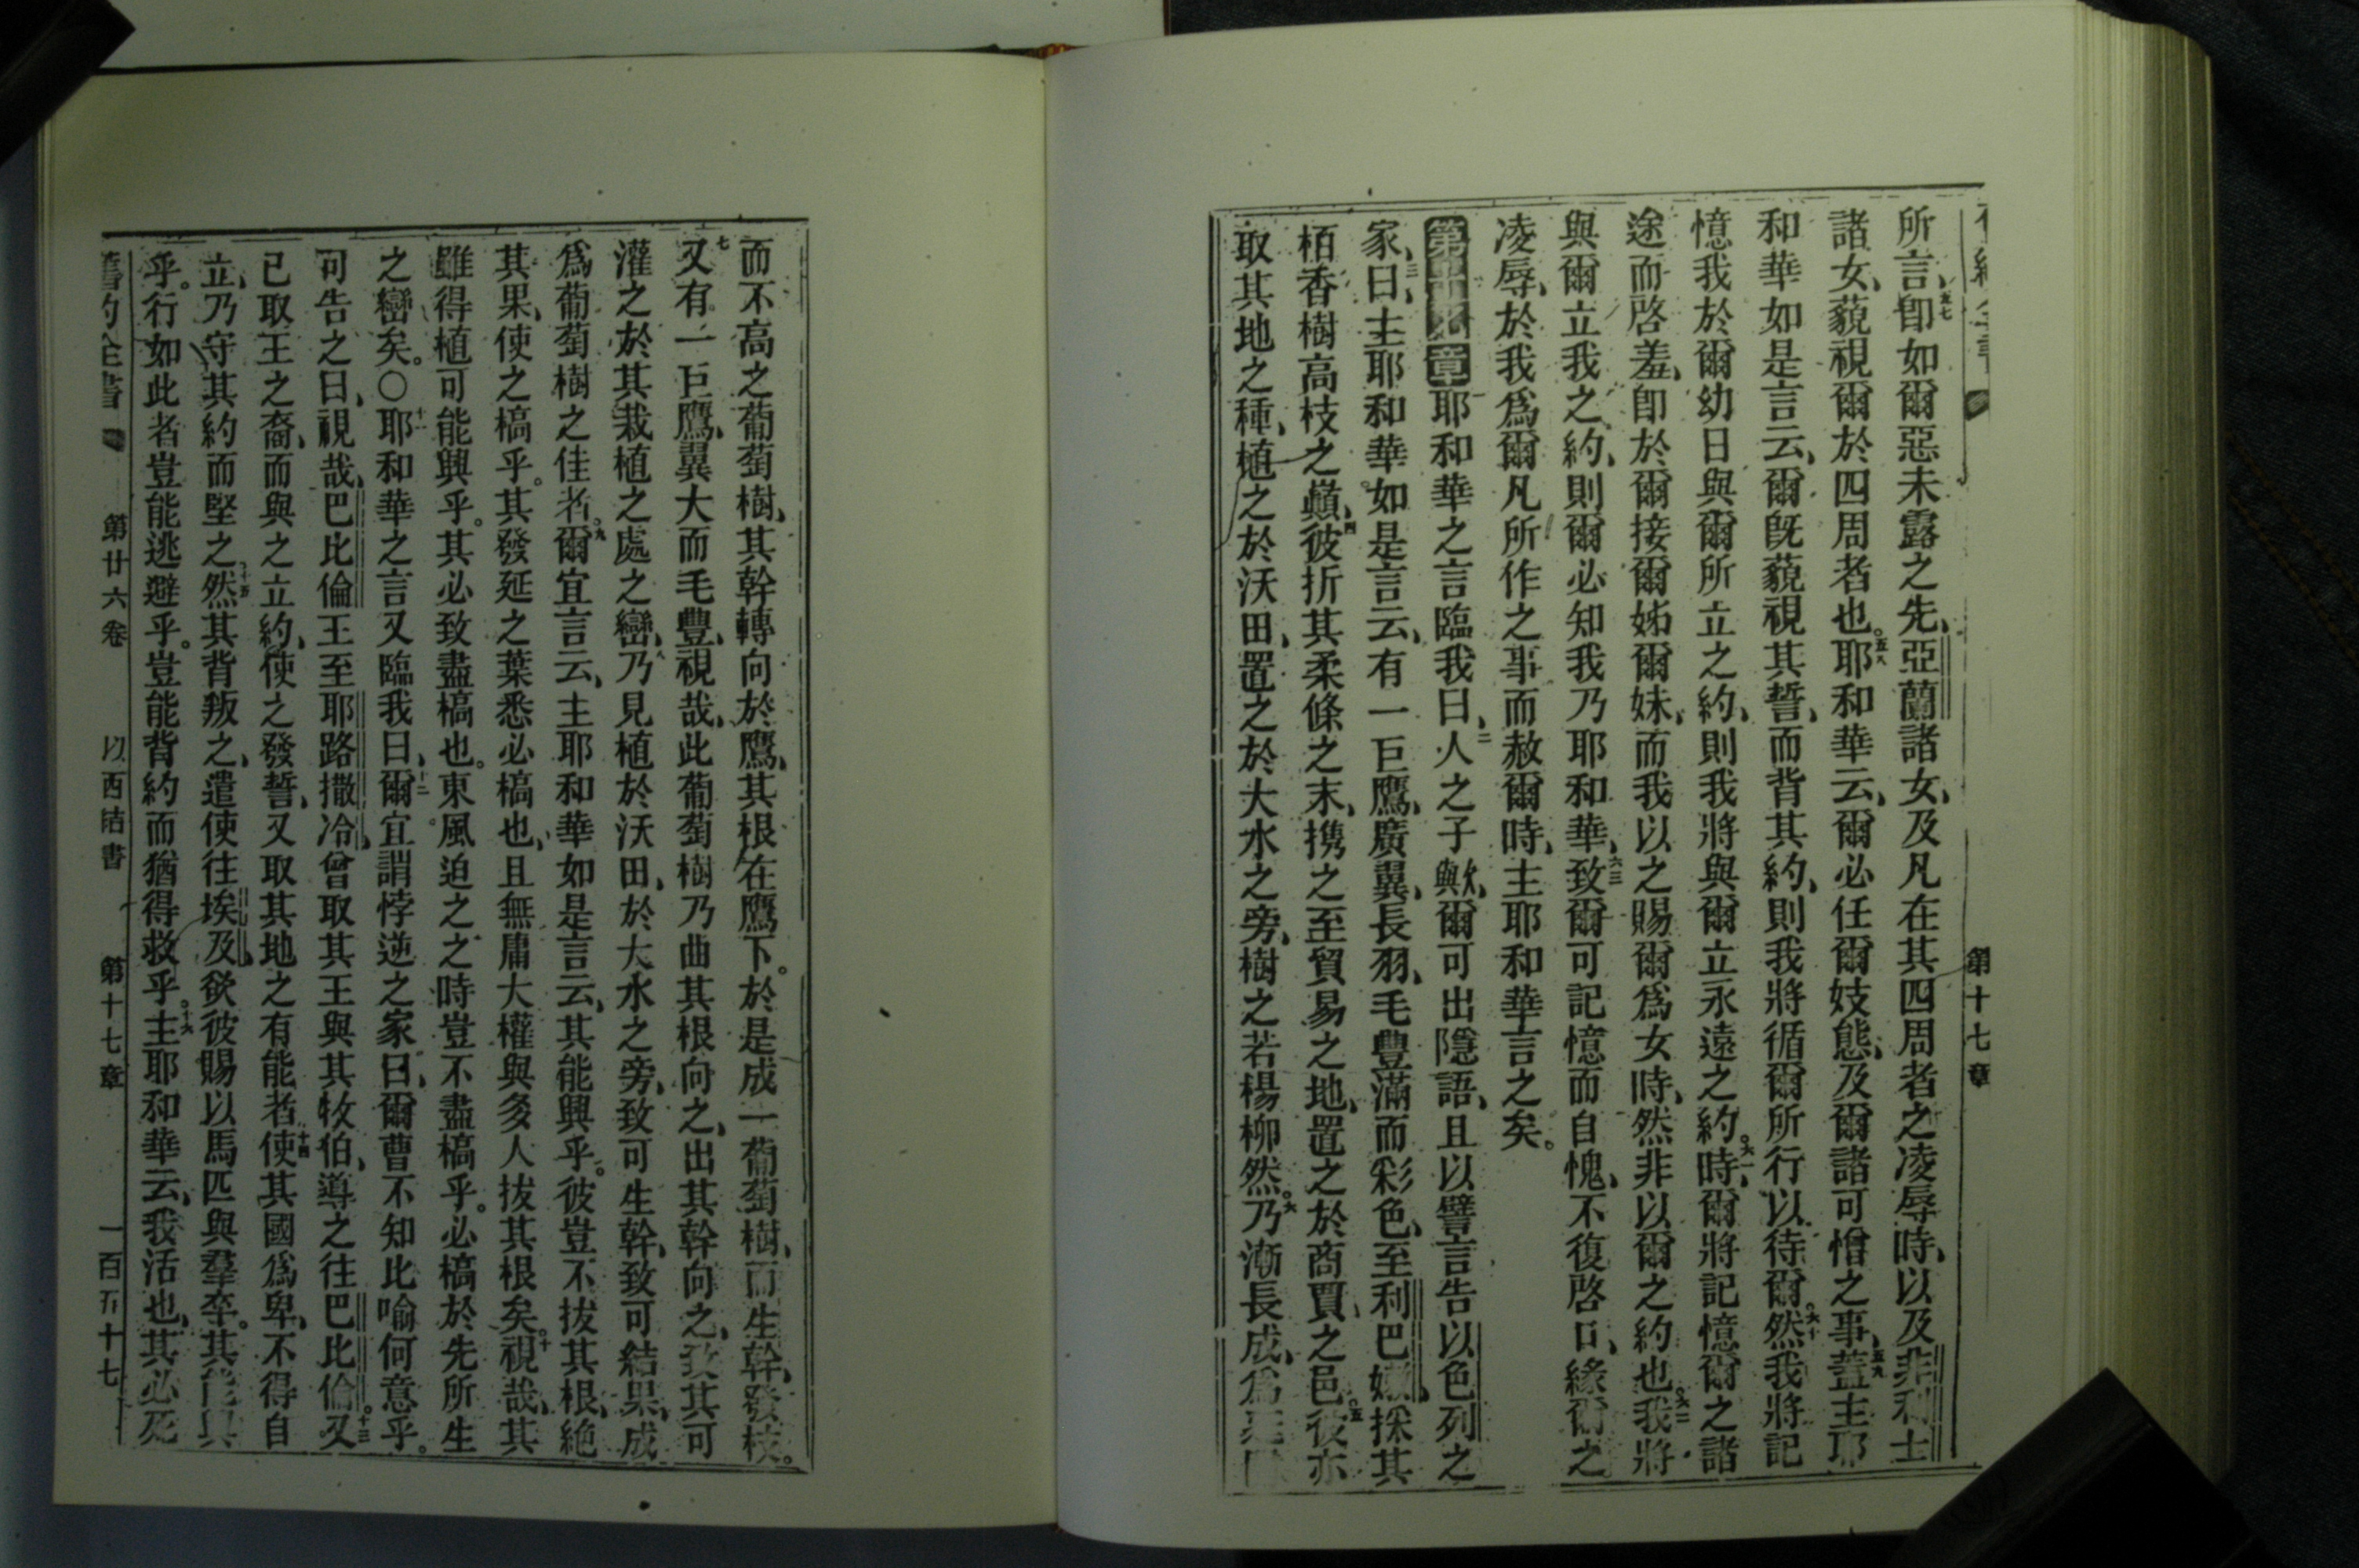 所言、五七卽如爾惡未露之先、亞蘭諸女、及凡在其四周者之凌辱時、以及非利士
諸女、藐視爾於四周者也。五八耶和華云、爾必任爾妓態、及爾諸可憎之事、五九蓋主耶
和華如是言云、爾旣藐視其誓、而背其約、則我將循爾所行以待爾。六十然我將記
憶我於爾幼日與爾所立之約、則我將與爾立永遠之約。六一時、爾將記憶爾之諸
途而啓羞、卽於爾接爾姊爾妹、而我以之賜爾爲女時、然非以爾之約也。六二我將
與爾立我之約、則爾必知我乃耶和華、六三致爾可記憶而自愧、不復啓口、緣爾之
凌辱、於我爲爾凡所作之事而赦爾時、主耶和華言之矣。
第十七章耶和華之言臨我曰、二人之子歟、爾可出隱語、且以譬言告以色列之
家、三曰、主耶和華如是言云、有一巨鷹、廣翼、長羽、毛豐滿而彩色、至利巴嫩、採其
栢香樹高枝之巔、四彼折其柔條之末、携之至貿易之地、置之於商賈之邑。五彼亦
取其地之種、植之於沃田、置之於大水之旁、樹之若楊柳然。六乃漸長成、爲
而不高之葡萄樹、其幹轉向於鷹、其根在鷹下。於是成一葡萄樹、而生幹、發枝。
七又有一巨鷹、翼大而毛豐、視哉、此葡萄樹乃曲其根向之、出其幹向之、致其可
灌之於其栽植之處之巒、八乃見植於沃田、於大水之旁、致可生幹、致可結果、成
爲葡萄樹之佳者。九爾宜言云、主耶和華如是言云、其能興乎。彼豈不拔其根、絕
其果、使之槁乎。其發延之葉悉必槁也、且無庸大權與多人拔其根矣。十視哉、其
雖得植可能興乎。其必致盡槁也。東風迫之之時豈不盡槁乎。必槁於先所生
之巒矣。○十一耶和華之言又臨我曰、十二爾宜謂悖逆之家曰、爾曹不知比喻何意乎。
可告之曰、視哉、巴比倫王至耶路撒冷、曾取其王與其牧伯、導之往巴比倫。十三又
已取王之裔、而與之立約、使之發誓、又取其地之有能者、十四使其國爲卑、不得自
立、乃守其約而堅之、十五然其背叛之、遣使往埃及、欲彼賜以馬匹與羣卒。其能興
乎。行如此者豈能逃避乎。豈能背約而猶得救乎。十六主耶和華云、我活也、其必死
第十七章
舊約全書
第廿六卷
以西結書
第十七章
一百五十七